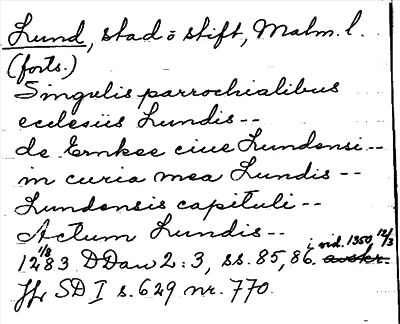 Lund, stad o stift, Malm. l.
(forts.)
Singulis parrochialibus
ecclesiis Lundis--
de Ernkee ciue Lundensi--
in curia mea Lundis--
Lundensis capituli--
Actum Lundis--
1283 1/8 DDan 2:3, ss. 85, 86. i vid. 1350 12/3 avskr.
Jfr SD I s. 629 nr. 770.